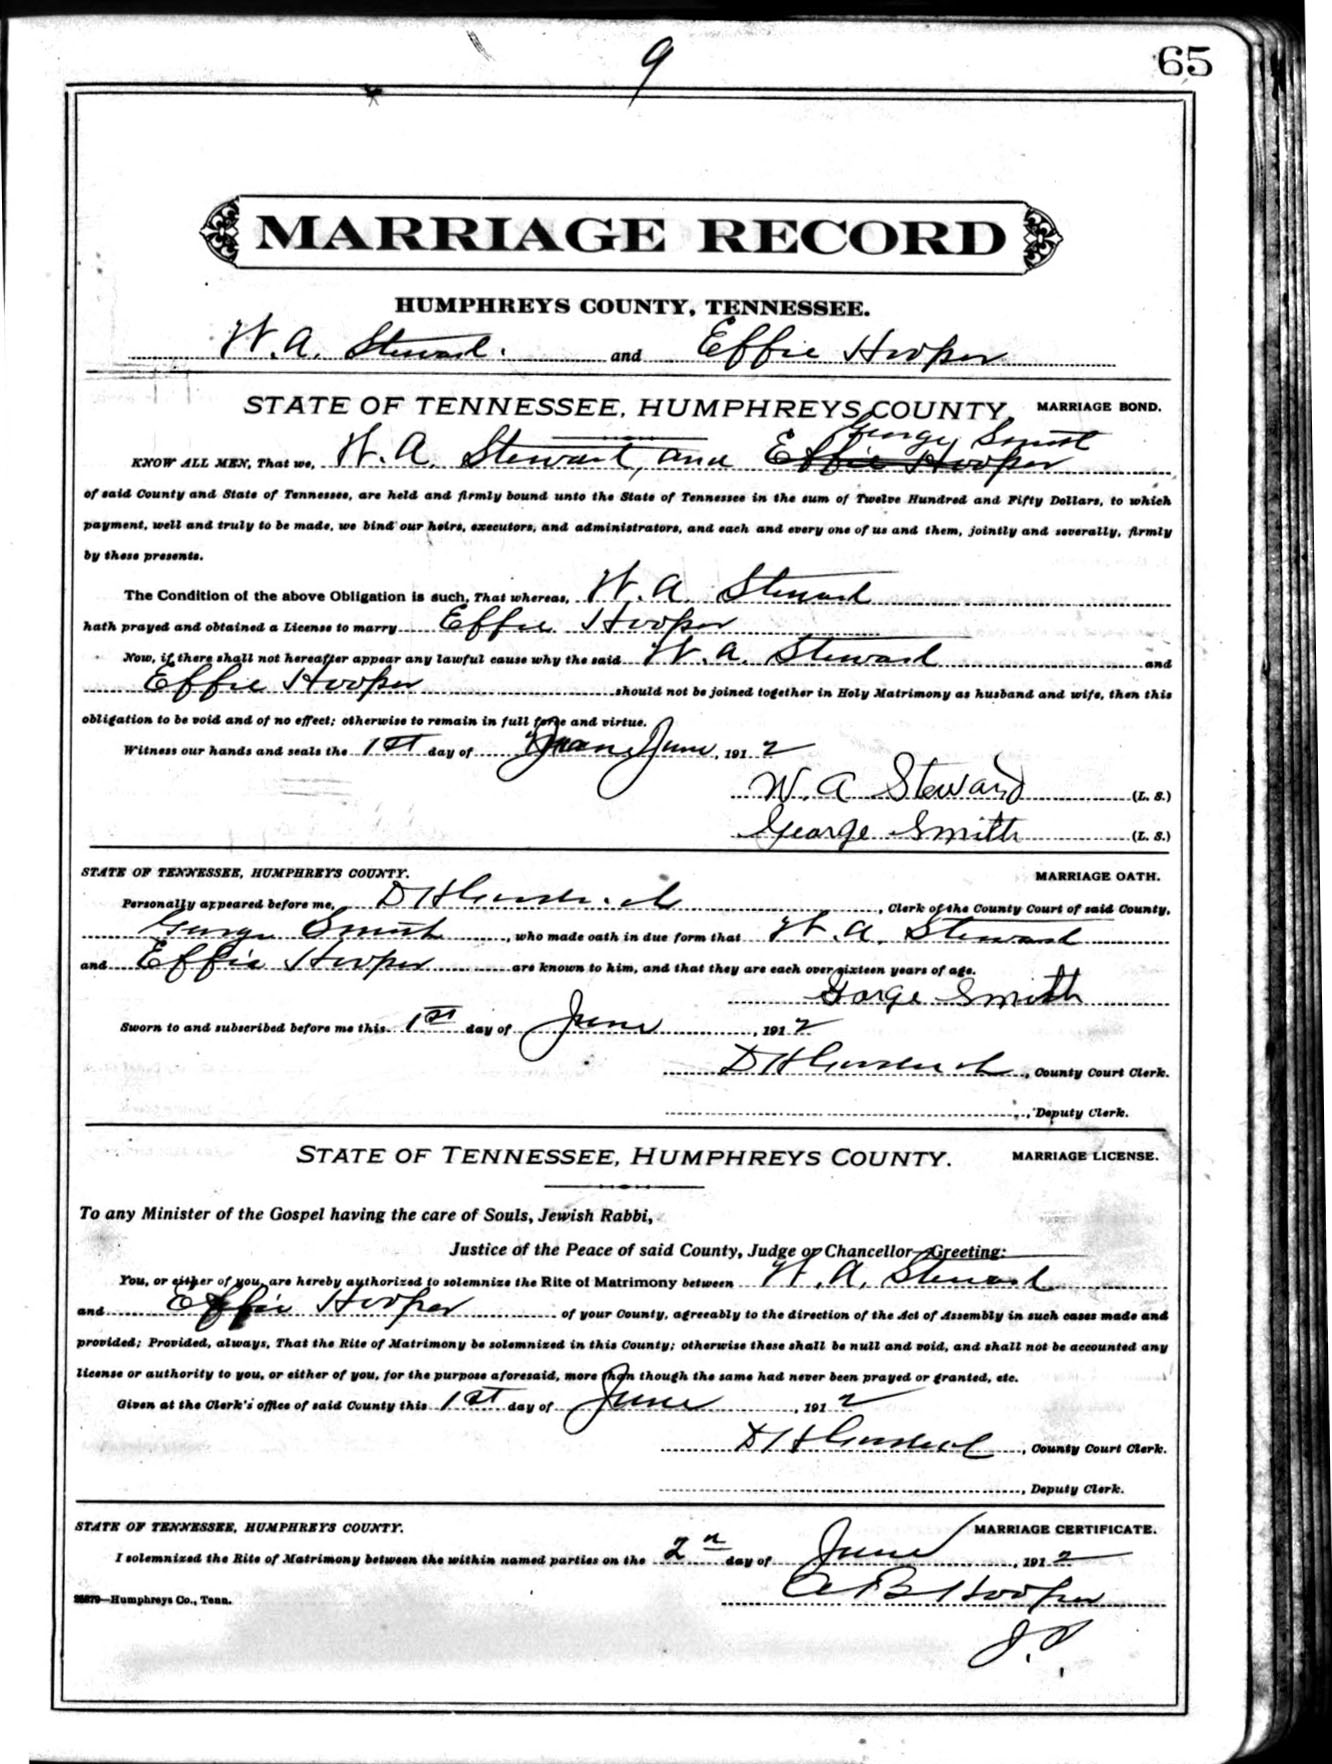 9
65
MARRIAGE RECORD
HUMPHREYS COUNTY, TENNESSEE.
W. A. Steward. and Effie Hooper
STATE OF TENNESSEE, HUMPHREYS COUNTY, MARRIAGE BOND.
George Smith
KNOW ALL MEN, That we, W. A. Steward, and Effie Hooper
of said County and State of Tennessee, are held and firmly bound unto the State of Tennessee in the sum of Twelve Hundred and Fifty Dollars, to which
payment, well and truly to be made, we bind our heirs, executors, and administrators, and each and every one of us and them, jointly and severally, firmly
by these presents.
The Condition of the above Obligation is such, That whereas, W. A. Steward
hath prayed and obtained a License to marry Effie Hooper
Now, if there shall not hereafter appear any lawful cause why the said W. A. Steward and
Effie Hooper should not be joined together in Holy Matrimony as husband and wife, then this
obligation to be void and of no effect; otherwise to remain in full force and virtue.
Witness our hands and seals the 1st day of June, 1912
W. A Steward (L. S.)
George Smith (L. S.)
STATE OF TENNESSEE, HUMPHREYS COUNTY. MARRIAGE OATH.
Personally appeared before me, D H , Clerk of the County Court of said County,
George Smith , who made oath in due form that W. A. Steward
and Effie Hooper are known to him, and that they are each over sixteen years of age.
Gorge Smith
Sworn to and subscribed before me this 1st day of June , 1912
D H , County Court Clerk.
, Deputy Clerk.
STATE OF TENNESSEE, HUMPHREYS COUNTY. MARRIAGE LICENSE.
To any Minister of the Gospel having the care of Souls, Jewish Rabbi,
Justice of the Peace of said County, Judge or Chancellor—Greeting:
You, or either of you, are hereby authorized to solemnize the Rite of Matrimony between W. A. Steward
and Effie Hooper of your County, agreeably to the direction of the Act of Assembly in such cases made and
provided; Provided, always, That the Rite of Matrimony be solemnized in this County; otherwise these shall be null and void, and shall not be accounted any
license or authority to you, or either of you, for the purpose aforesaid, more than though the same had never been prayed or granted, etc.
Given at the Clerk's office of said County this 1st day of June , 1912
D H , County Court Clerk.
, Deputy Clerk.
STATE OF TENNESSEE, HUMPHREYS COUNTY. MARRIAGE CERTIFICATE.
I solemnized the Rite of Matrimony between the within named parties on the 2n day of June , 1912
—Humphreys Co., Tenn. A B Hooper
J. P.